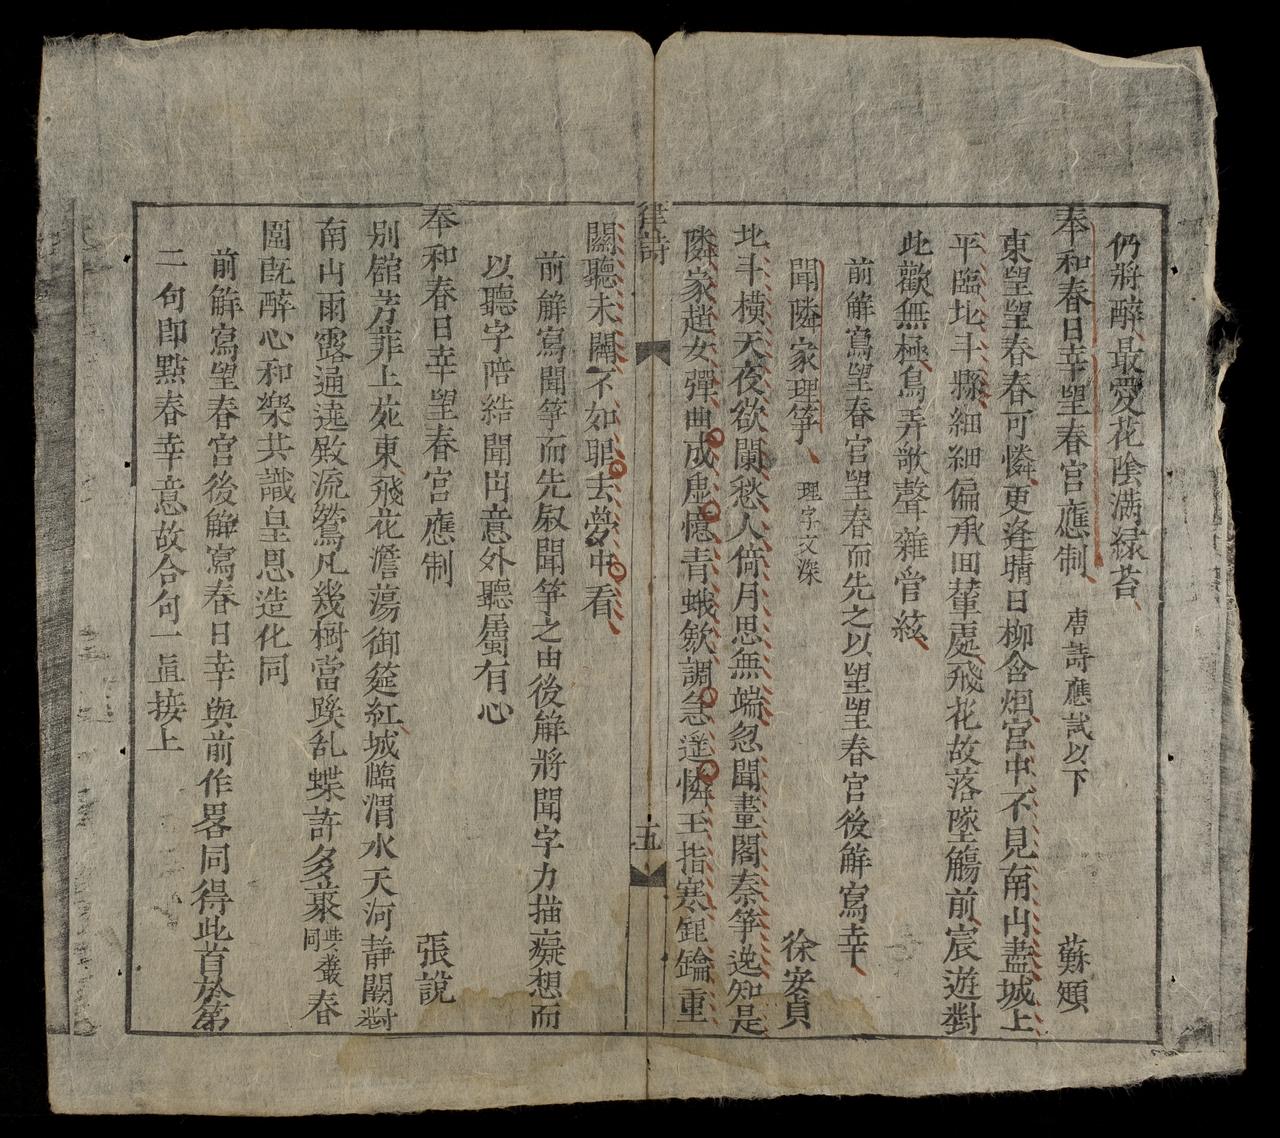 仍將醉最愛花陰满緑苔
奉和春日幸望春宫應制 唐詩應試以下 蘇頲
東望望春春可憐更逢晴日柳含烟宫中不見南山盡城上
平臨北斗縣細細偏承回輦處飛花故落墜觴前宸遊對
此歡無極鳥弄歌聲雜管絃
前觧寫望春宫望春而先之以望望春宫後觧寫幸
聞隣家理筝 理字文深 徐安貞
北斗橫天夜欲闌愁人倚月思無端忽聞畫閣秦筝逸知是
隣家趙女彈曲成虚憶青蛾歛調急遥憐玉指寒銀鑰重
律詩 五
關聽未闢不如眠去夢中看
前觧寫聞筝而先叙聞筝之由後觧將聞字力描癡想而
以聽字陪結聞內意外聽屬有心
奉和春日幸望春宫應制 張說
别舘芳菲上苑東飛花澹蕩御筵紅城臨渭水天河静闕對
南山雨露通遶殿流鶯凡幾樹當蹊乱蝶許多叢聚叢同春
園既醉心和樂共識皇恩造化同
前觧寫望春宫後觧寫春日幸與前作畧同得此首於第
二句即點春幸意故合句一直接上